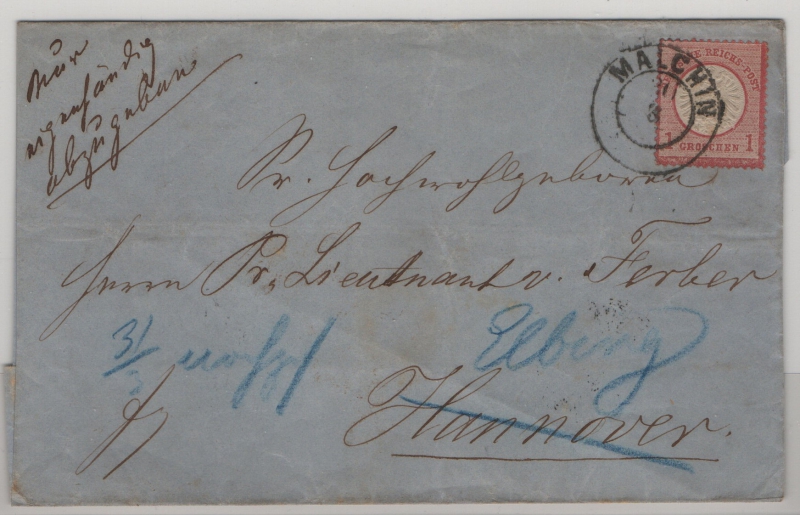 Nur
eigenhändig
abzugeben
MALCHIN
8
REICHS-POST
1 GROSCHEN 1
Sr. Hochwohlgeboren
Herrn Pr. Lieutnant v. Ferber
3/
Elbing
Hannover.